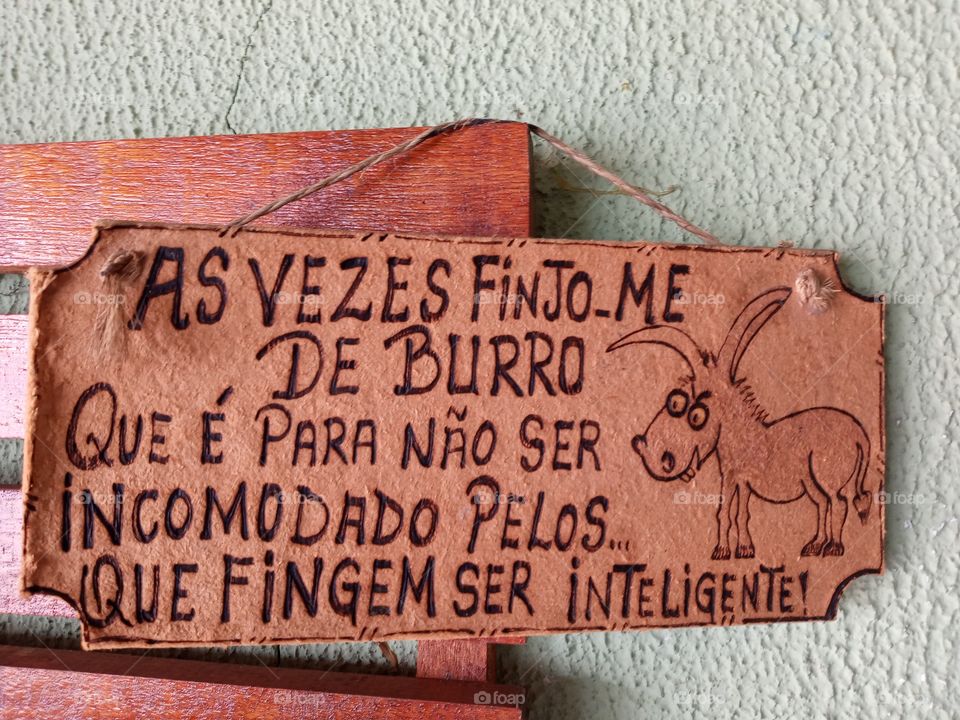 AS VEZES FINJO-ME
DE BURRO
QUE É PARA NÃO SER
INCOMODADO PELOS...
¡QUE FINGEM SER INTELIGENTE!
foap